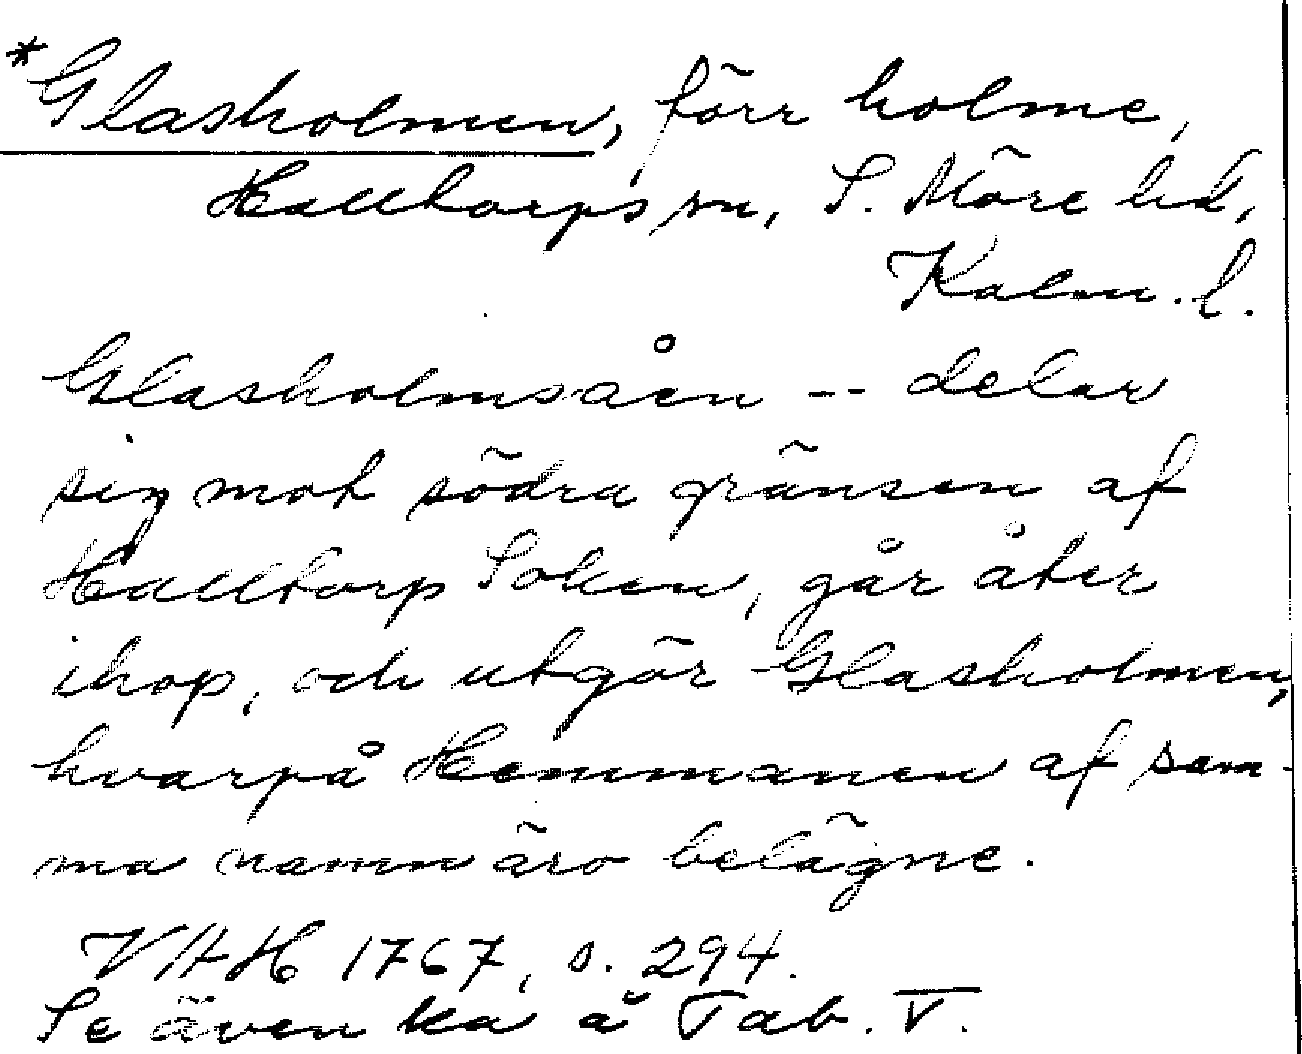 *Glasholmen, förr holme,
Halltorps sn, S. Möre hd,
Kalm. l.
Glasholmsåen -- delar
sig mot södra gränsen af
Halltorp Soken, går åter
ihop, och utgör Glasholmen,
hvarpå Hemmanen af sam-
ma namn äro belägne.
VAH 1767, s. 294.
Se även ka å Tab. V.